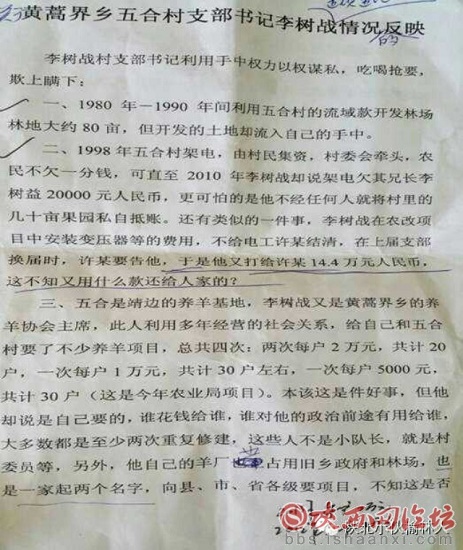 黄蒿界乡五合村支部书记李树战情况反映
的
李树战村支部书记利用手中权力以权谋私，吃喝抢要，
欺上瞒下：
一、1980 年－1990 年间利用五合村的流域款开发林场
林地大约 80 亩，但开发的土地却流入自己的手中。
二、1998 年五合村架电，由村民集资，村委会牵头，农
民不欠一分钱，可直至 2010 年李树战却说架电欠其兄长李
树益 20000 元人民币，更可恨的是他不经任何人就将村里的
几十亩果园私自抵账。还有类似的一件事，李树战在农改项
目中安装变压器等的费用，不给电工许某结清，在上届支部
换届时，许某要告他，于是他又打给许某 14.4 万元人民币，
这不知又用什么款还给人家的？
三、五合是靖边的养羊基地，李树战又是黄蒿界乡的养
羊协会主席，此人利用多年经营的社会关系，给自己和五合
村要了不少养羊项目，总共四次：两次每户 2 万元，共计 20
户，一次每户 1 万元，共计 30 户左右，一次每户 5000 元，
共计 30 户（这是今年农业局项目）。本该这是件好事，但他
却说是自己要的，谁花钱给谁，谁对他的政治前途有用给谁，
大多数都是至少两次重复修建，这些人不是小队长，就是村
委员等，另外，他自己的羊厂占用旧乡政府和林场，也
是一家起两个名字，向县、市、省各级要项目，不知这是否
陕西网论坛
bbs.ishaanxi.com